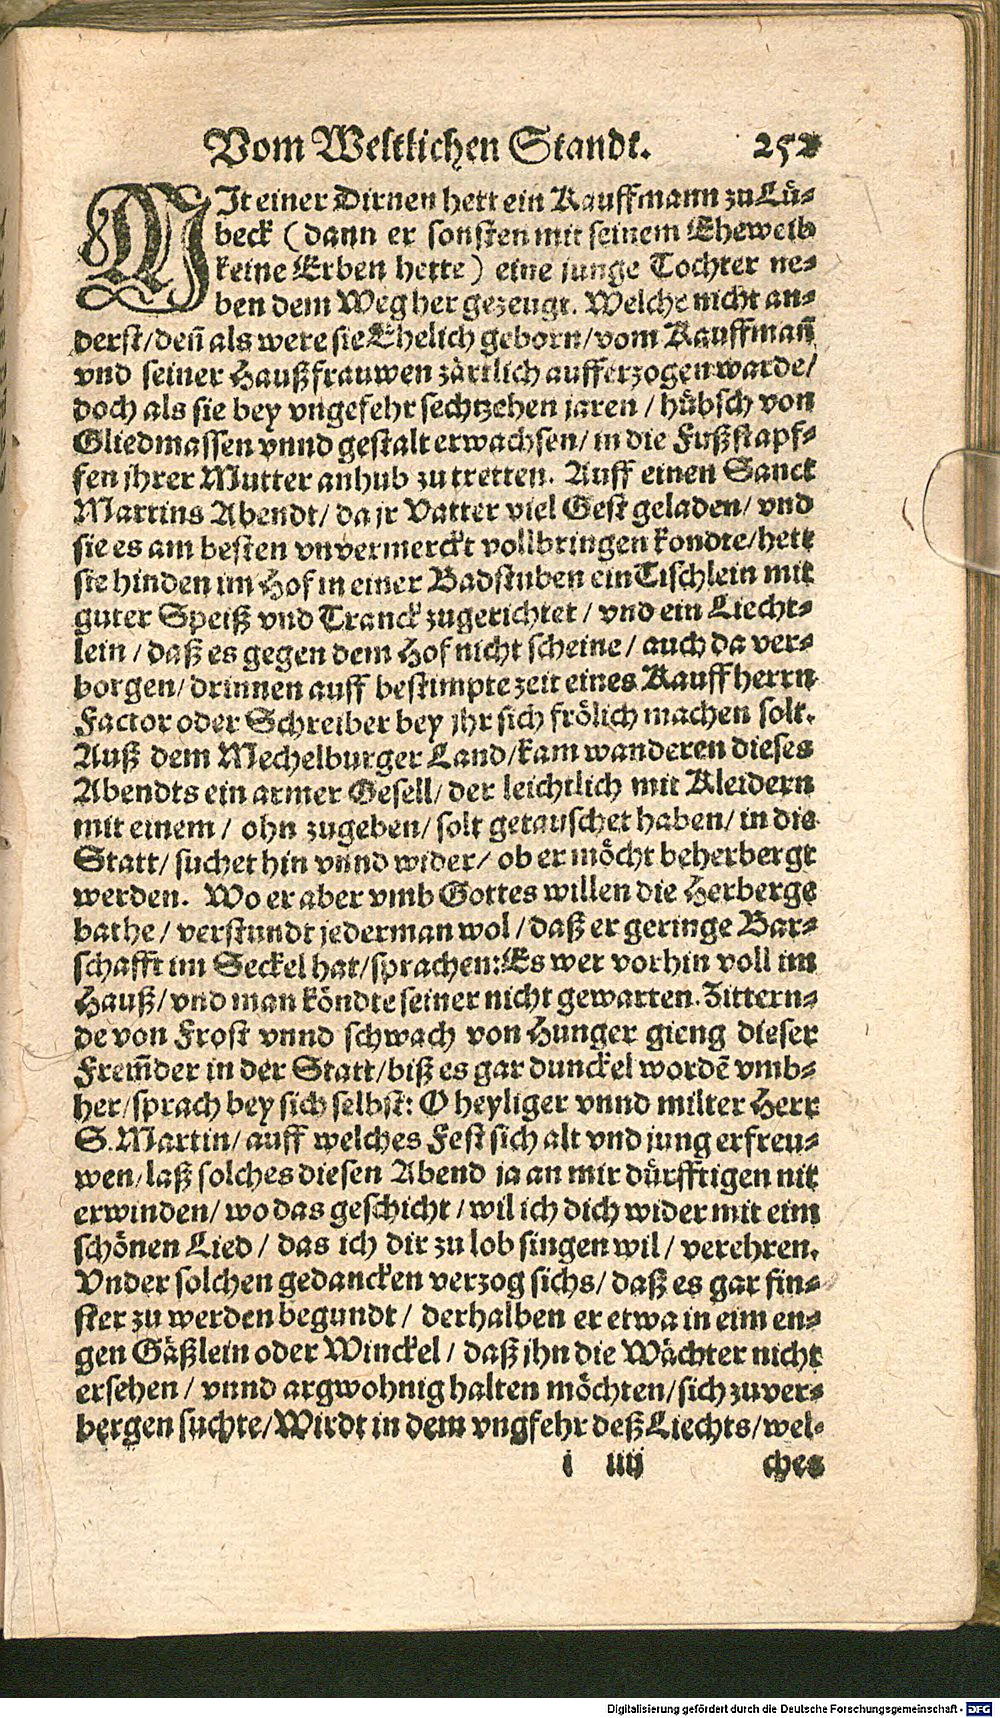 Vom Weltlichen Standt. 252
MIt einer Dirnen hett ein Kauffmann zu Lü-
beck (dann er sonsten mit seinem Eheweib
keine Erben hette) eine junge Tochter ne-
ben dem Weg her gezeugt. Welche nicht an-
derst/ deñ als were sie Ehelich geborn/ vom Kauffmañ
vnd seiner Haußfrauwen zärtlich aufferzogen warde/
doch als sie bey vngefehr sechtzehen jaren / hübsch von
Gliedmassen vnnd gestalt erwachsen/ in die Fußstapf-
fen jhrer Mutter anhub zu tretten. Auff einen Sanct
Martins Abendt/ da jr Vatter viel Gest geladen/ vnd
sie es am besten vnvermerckt vollbringen kondte/ hett
sie hinden im Hof in einer Badstuben ein Tischlein mit
guter Speiß vnd Tranck zugerichtet / vnd ein Liecht-
lein / daß es gegen dem Hof nicht scheine / auch da ver-
borgen/ drinnen auff bestimpte zeit eines Kauffherrn
Factor oder Schreiber bey jhr sich frölich machen solt.
Auß dem Mechelburger Land/ kam wanderen dieses
Abendts ein armer Gesell/ der leichtlich mit Kleidern
mit einem / ohn zugeben/ solt getauschet haben/ in die
Statt/ suchet hin vnnd wider/ ob er möcht beherbergt
werden. Wo er aber vmb Gottes willen die Herberge
bathe / verstundt jederman wol / daß er geringe Bar-
schafft im Seckel hat/ sprachen: Es wer vorhin voll im
Hauß/ vnd man köndte seiner nicht gewarten. Zittern-
de von Frost vnnd schwach von Hunger gieng dieser
Frem̃der in der Statt/ biß es gar dunckel wordẽ vmb-
her/ sprach bey sich selbst: O heyliger vnnd milter Herr
S. Martin/ auff welches Fest sich alt vnd jung erfreu-
wen/ laß solches diesen Abend ja an mir dürfftigen nit
erwinden/ wo das geschicht / wil ich dich wider mit eim
schönen Lied / das ich dir zu lob singen wil / verehren.
Vnder solchen gedancken verzog sichs/ daß es gar fin-
ster zu werden begundt / derhalben er etwa in eim en-
gen Gäßlein oder Winckel / daß jhn die Wächter nicht
ersehen / vnnd argwohnig halten möchten/ sich zuver-
bergen suchte/ Wirdt in dem vngfehr deß Liechts/ wel-
i iiij ches
Digitalisierung gefördert durch die Deutsche Forschungsgemeinschaft - DFG